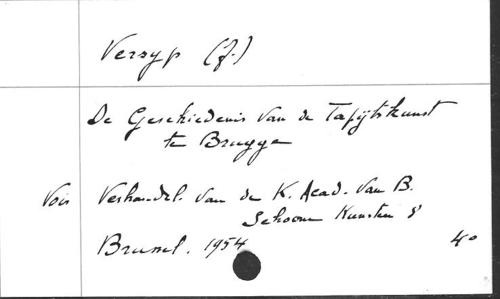 Versyp (J.)
De Geschiedenis van de Tapijtskunst
te Brugge
Vois Verhandel. van de K. Acad. van B.
Schoone Kunsten
Brussel. 1954 4o